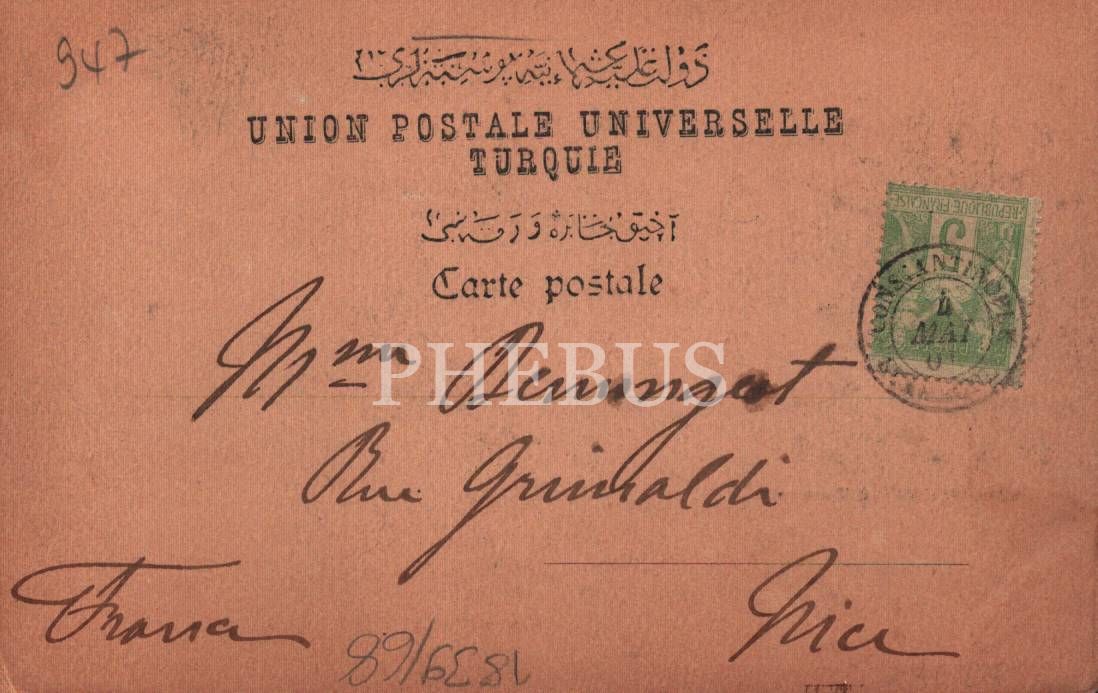 947
دولت علیهٔ عثمانیه پوسته لری
UNION POSTALE UNIVERSELLE
TURQUIE
آچیق مخابره ورقه سی
Carte postale
RÉPUBLIQUE FRANÇAISE
5
CONSTANTINOPLE
4
MAI
01
Mme
PHEBUS
Rue Grimaldi
Nice
France
1839/68